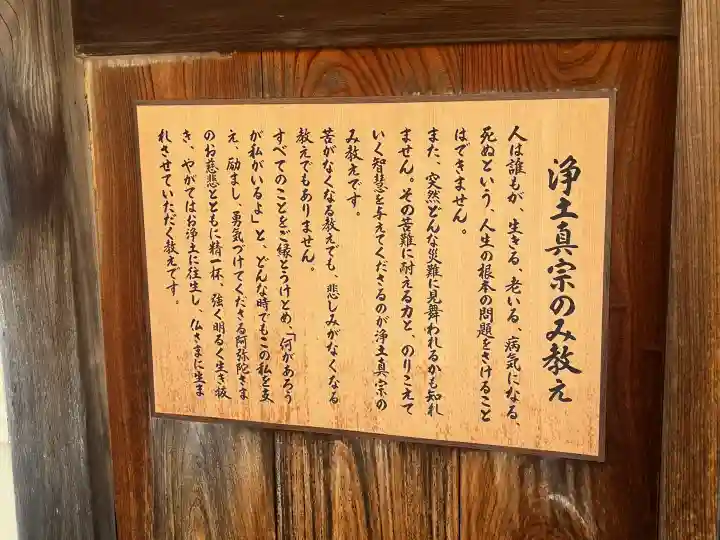 浄土真宗のみ教え
人は誰もが、生きる、老いる、病気になる、
死ぬという、人生の根本の問題をさけること
はできません。
また、突然どんな災難に見舞われるかも知れ
ません。その苦難に耐える力と、のりこえて
いく智慧を与えてくださるのが浄土真宗の
み教えです。
苦がなくなる教えでも、悲しみがなくなる
教えでもありません。
すべてのことをご縁とうけとめ、「何があろう
が私がいるよ」と、どんな時でもこの私を支
え、励まし、勇気づけてくださる阿弥陀さま
のお慈悲とともに精一杯、強く明るく生き抜
き、やがてはお浄土に往生し、仏さまに生ま
れさせていただく教えです。